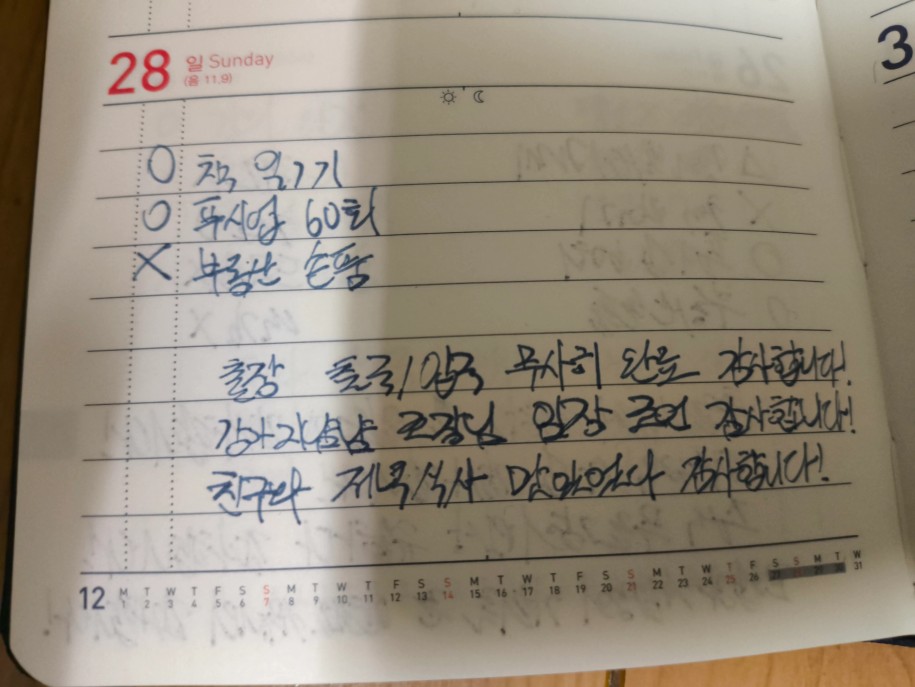 28 일 Sunday
(음 11.9)
3
O 책 읽기
O 푸시업 60회
X 부동산 손품
출장 출국/입국 무사히 완료 감사합니다!
조장님 임장 조언 감사합니다!
친구와 저녁식사 맛있었다 감사합니다!
12 M T W T F S S M T W T F S S M T W T F S S M T W T F S S M T W
1 2 3 4 5 6 7 8 9 10 11 12 13 14 15 16 17 18 19 20 21 22 23 24 25 26 27 28 29 30 31